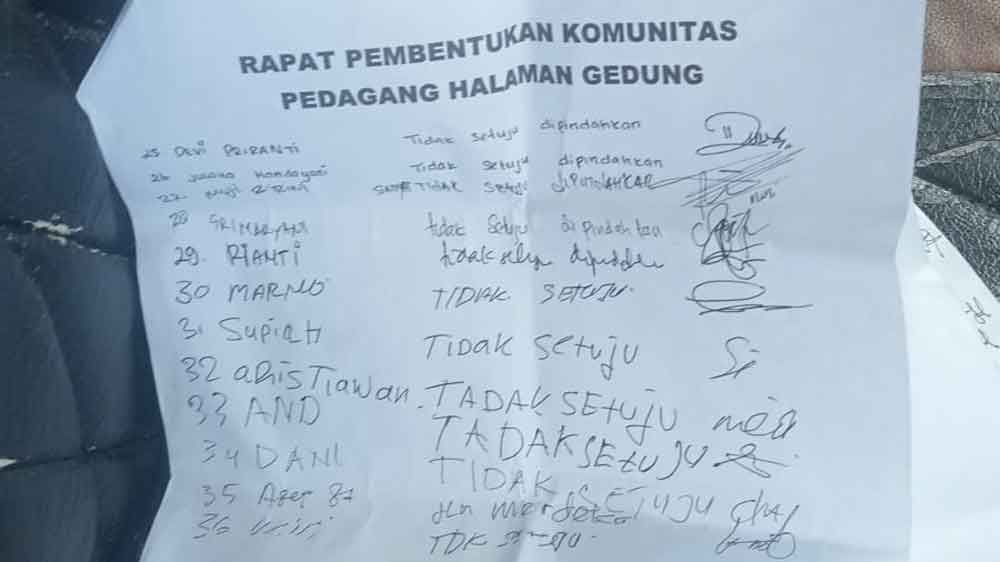 RAPAT PEMBENTUKAN KOMUNITAS
PEDAGANG HALAMAN GEDUNG
25 DEVI PRIRANTI Tidak setuju dipindahkan
26 Handayani Tidak setuju dipindahkan
27 TIDAK SETUJU DIPINDAHKAN
28 SRIMARYANI tidak setuju dipindahkan
29. RIANTI tidak
30 MARNO TIDAK SETUJU.
31 Supiah TIDAK SETUJU
32 aRisTiawan. TADAK SETUJU
33 AND TADAK SETUJU
34 DANI TIDAK SETUJU
35 Asep 87 Jln merdeka
36 TDK SETUJU.